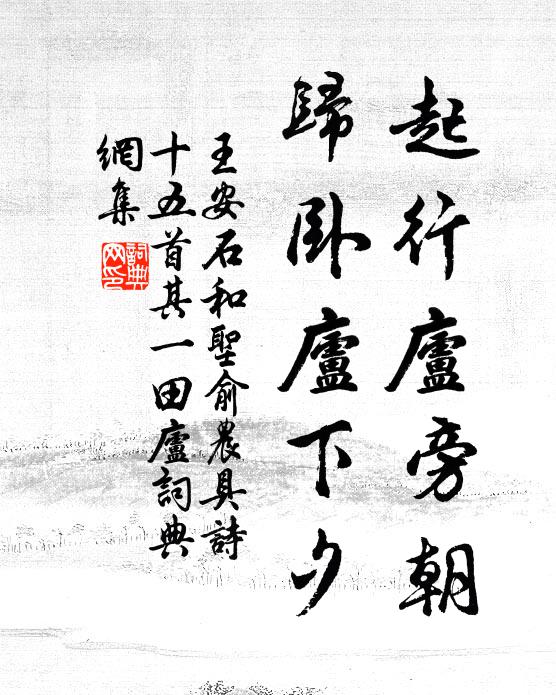 起行廬旁朝
歸臥廬下夕
王安石和聖俞農具詩
十五首其一田廬詞典
網集
詞典
网印